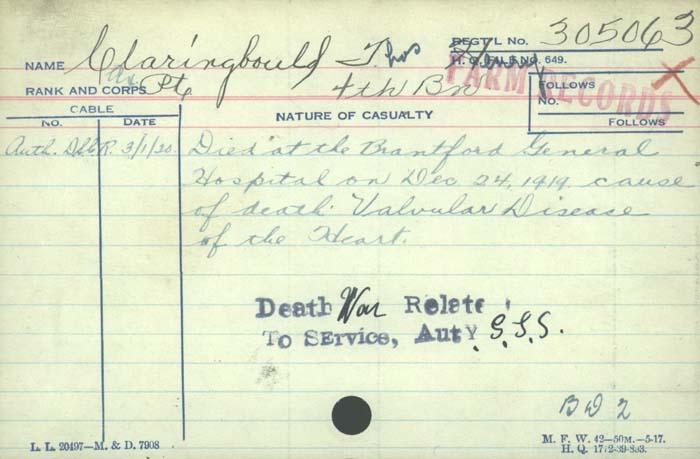 REGT'L No. 305063
NAME Claringbould Thos
H. Q. FILE NO. 649.
RANK AND CORPS Pte 4th Bn
FARM RECORDS
FOLLOWS
No.
FOLLOWS
CABLE
No. DATE
NATURE OF CASUALTY
Auth. 3/1/20. Died at the Brantford General
Hospital on Dec 24, 1919, cause
of death. Valvular Disease
of the Heart.
Death War Relate
To Service, Auty S.S.S.
B D 2
L. L. 20497—M. & D. 7908
M. F. W. 42—50M.—5-17.
H. Q. 1772-39-893.